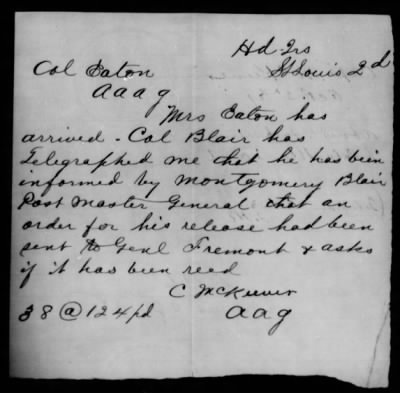 Hd Qrs
St Louis 2d
Col Eaton
A a a g
Mrs Eaton has
arrived - Col Blair has
Telegraphed me that he has been
informed by Montgomery Blair
Post Master General that an
order for his release had been
sent to Genl Fremont & asks
if it has been recd
C McKeever
a a g
38 @ 124 pd